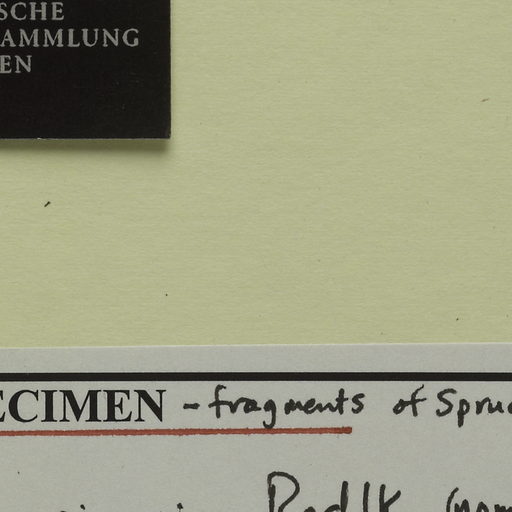 SCHE
AMMLUNG
EN
ECIMEN - fragments of Spruc
Radlk (nom